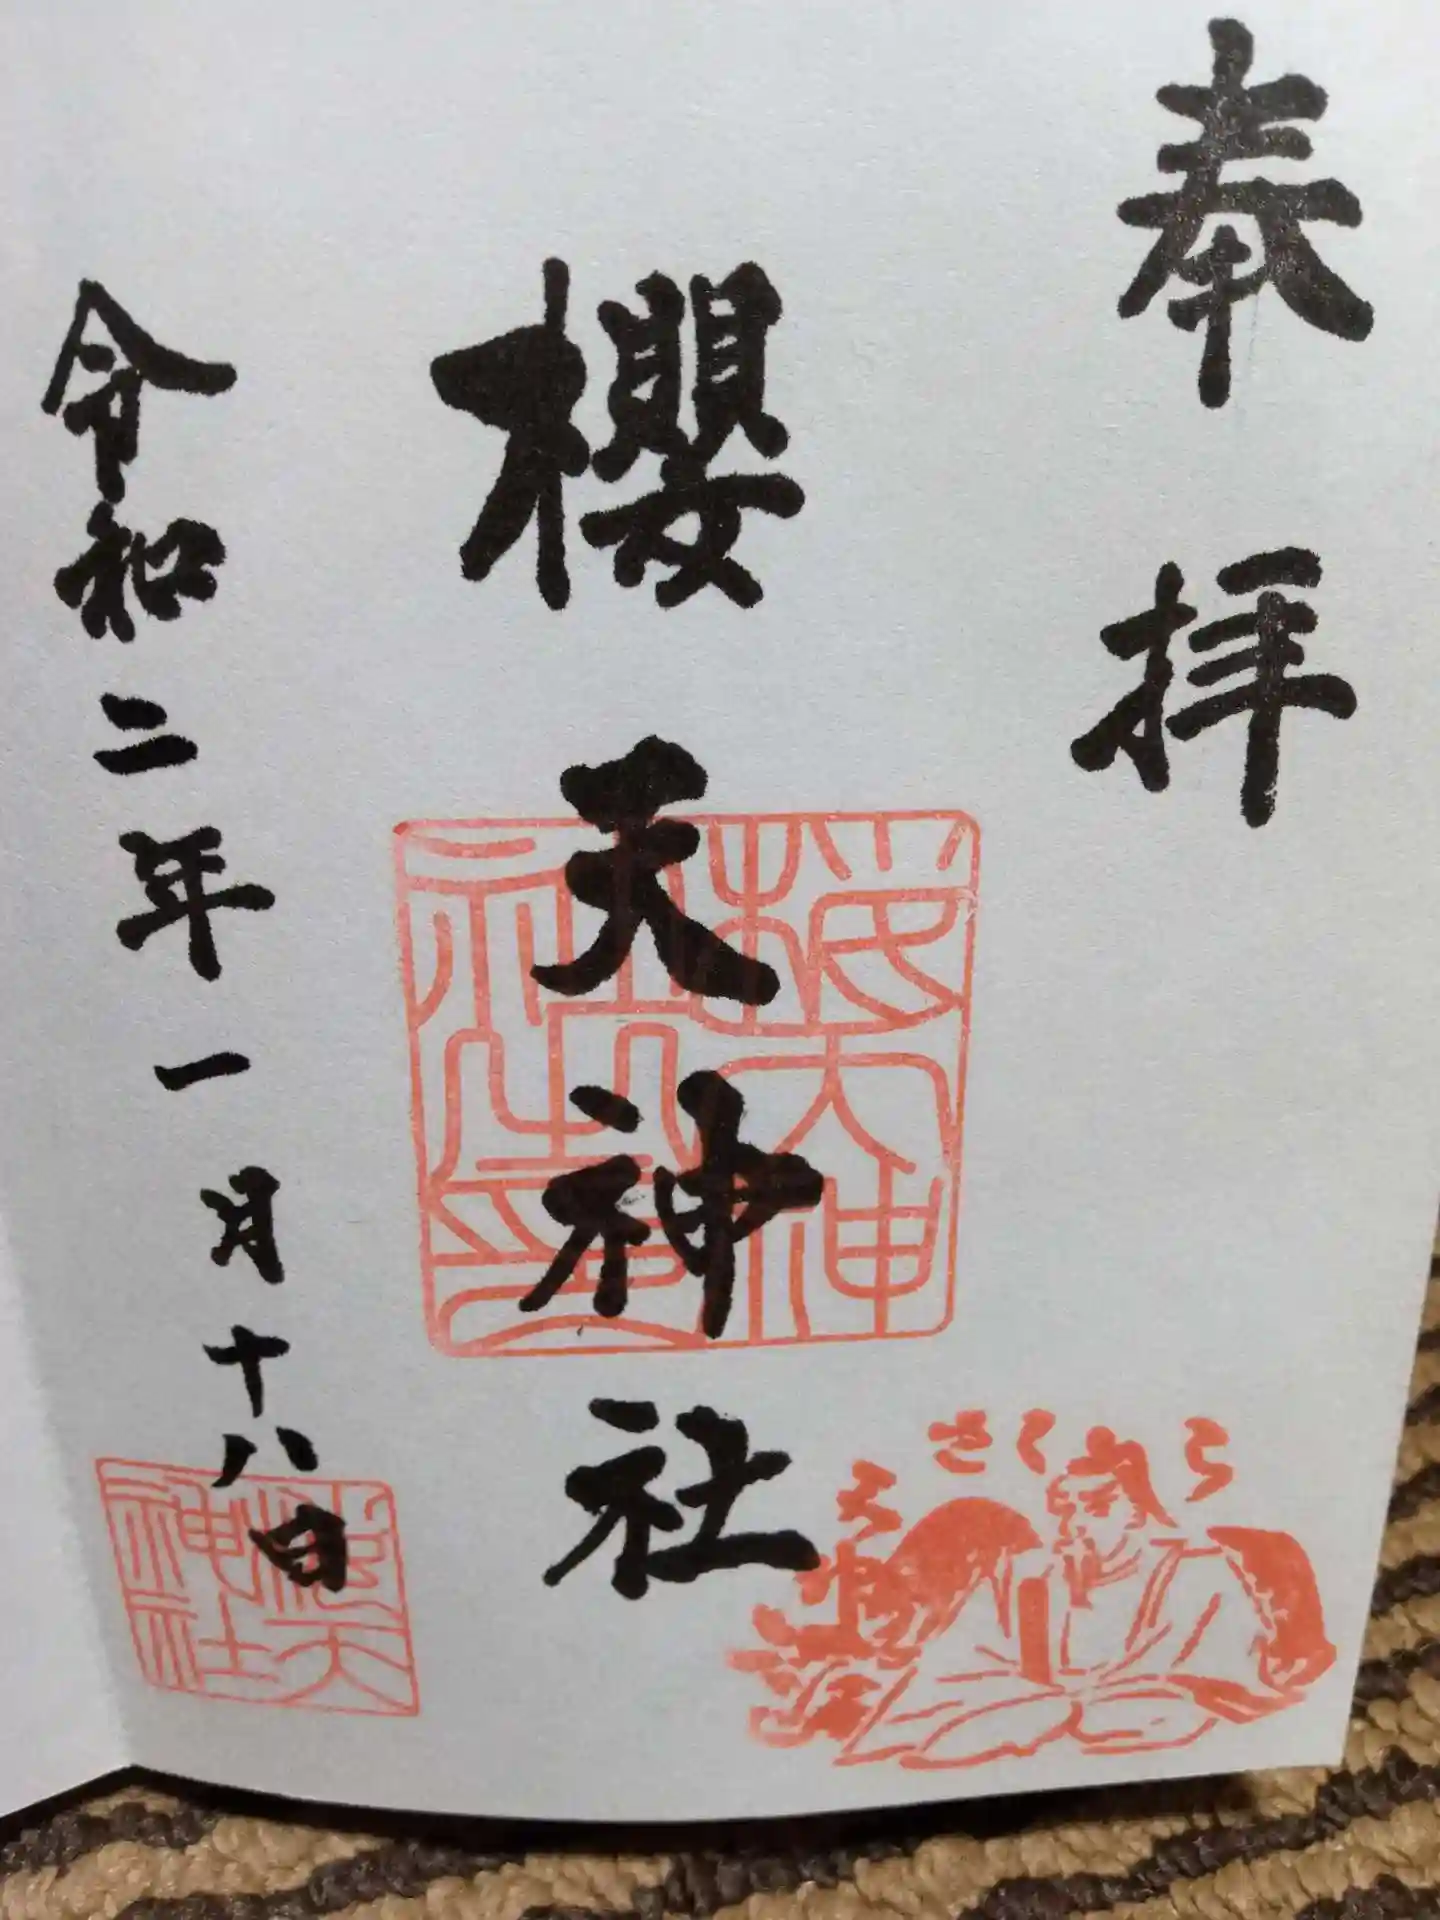 奉拝
櫻天神社
令和二年一月十八日
桜天神
社之印
さくら
桜天
神社